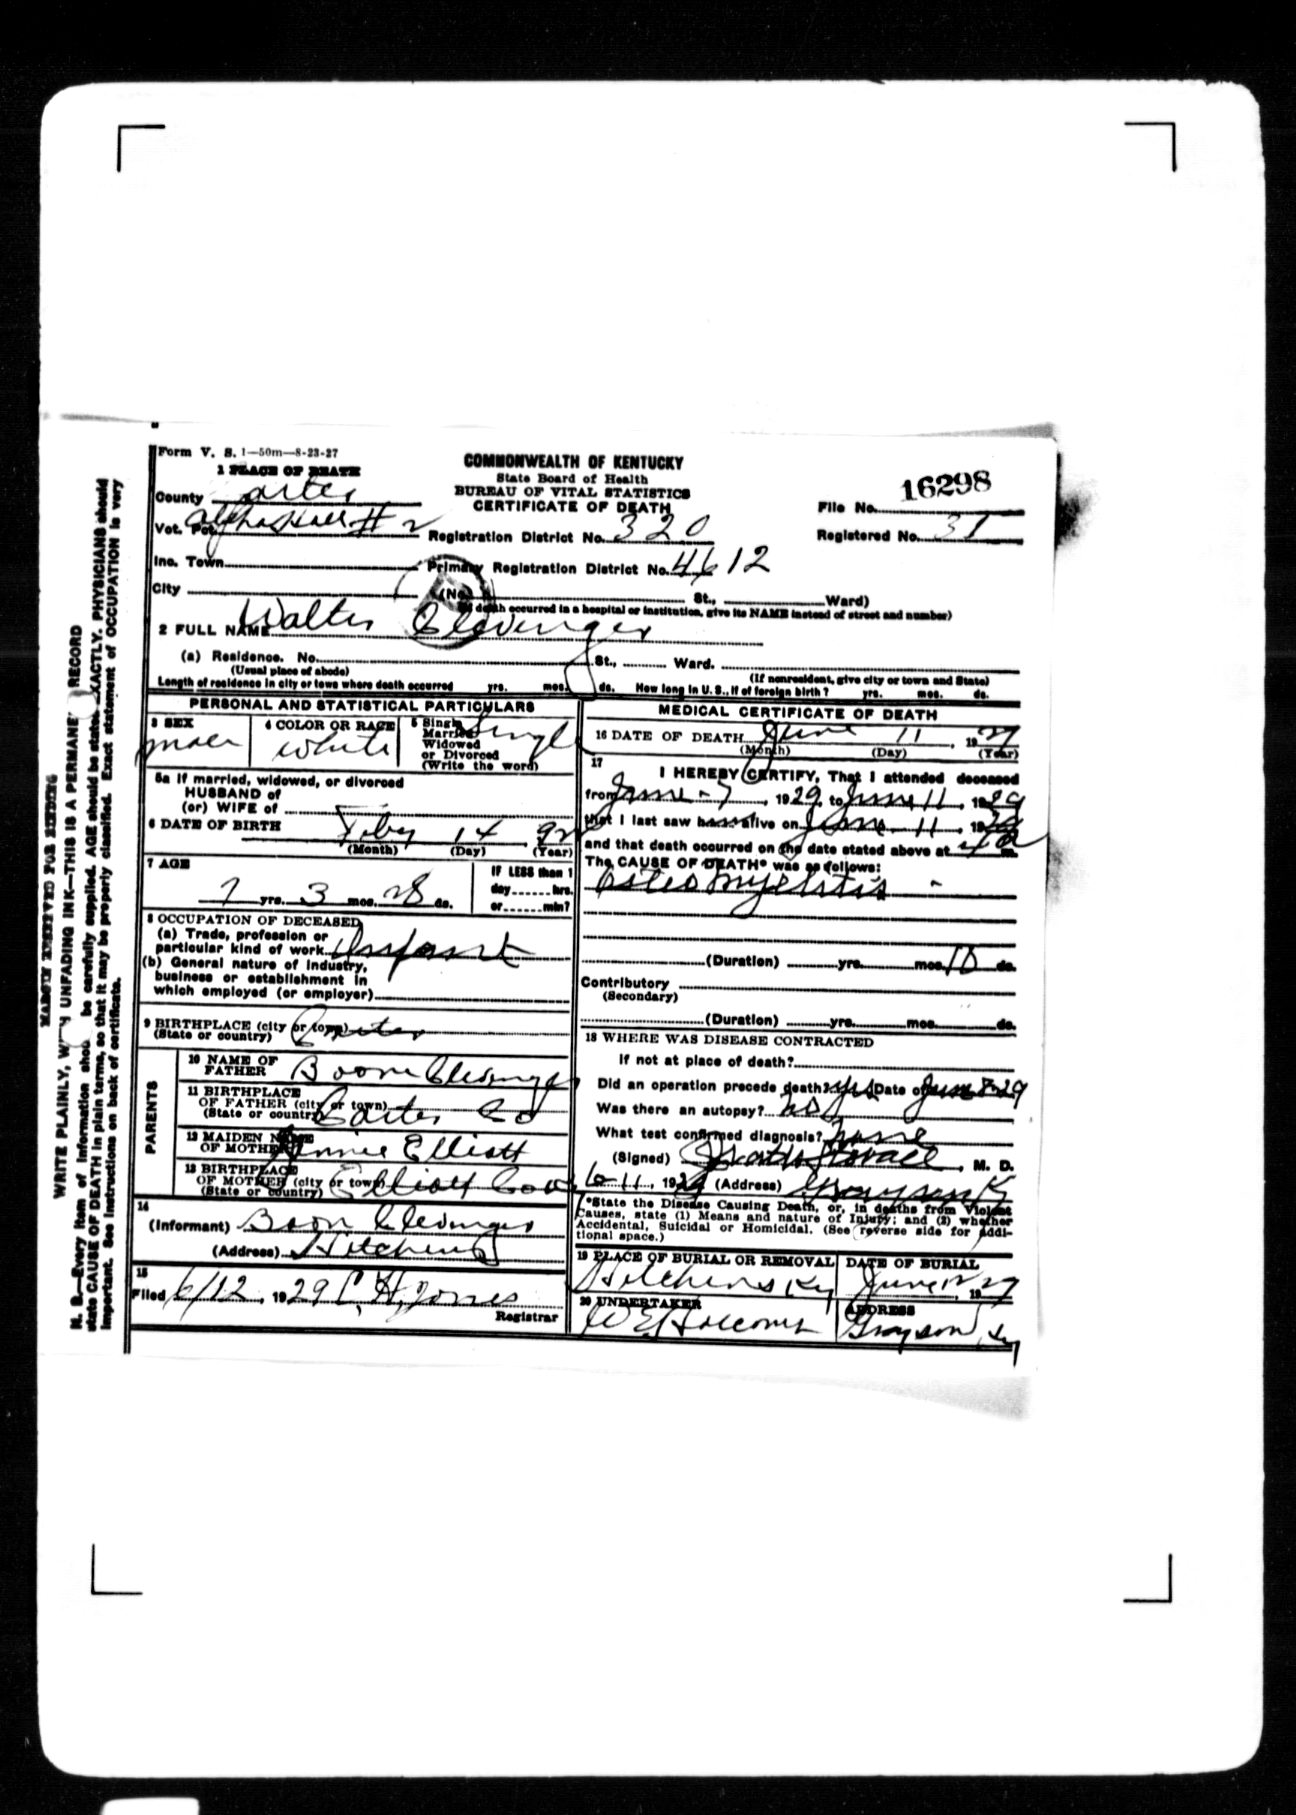 Form V. S. 1—50m—8-23-27
1 PLACE OF DEATH
COMMONWEALTH OF KENTUCKY
State Board of Health
BUREAU OF VITAL STATISTICS
CERTIFICATE OF DEATH
File No. 16298
Registered No. 31
County Carter
Vot. Pct. Alpha Hall # 2
Registration District No. 320
Inc. Town
Primary Registration District No. 4612
City
(No. St., Ward)
(If death occurred in a hospital or institution, give its NAME instead of street and number)
2 FULL NAME Walter Clevenger
(a) Residence. No. St., Ward.
(Usual place of abode) (If nonresident, give city or town and State)
Length of residence in city or town where death occurred yrs. mos. ds. How long in U. S., if of foreign birth? yrs. mos. ds.
PERSONAL AND STATISTICAL PARTICULARS
3 SEX
4 COLOR OR RACE
5 Single
Married
Widowed
or Divorced
(Write the word)
white Single
5a If married, widowed, or divorced
HUSBAND of
(or) WIFE of
6 DATE OF BIRTH Feby 14
(Month) (Day) (Year)
7 AGE
7 yrs. 3 mos. 28 ds.
IF LESS than 1
day......hrs.
or......min?
8 OCCUPATION OF DECEASED
(a) Trade, profession or
particular kind of work Infant
(b) General nature of industry,
business or establishment in
which employed (or employer)
9 BIRTHPLACE (city or town) Carter
(State or country)
PARENTS
10 NAME OF
FATHER Boone Clevenger
11 BIRTHPLACE
OF FATHER (city or town)
(State or country) Carter Co
12 MAIDEN NAME
OF MOTHER Annie Elliott
13 BIRTHPLACE
OF MOTHER (city or town)
(State or country) Elliott Co
14
(Informant) Boon Clevenger
(Address) Hitchins
15
Filed 6/12, 1929 C. H. Jones
Registrar
MEDICAL CERTIFICATE OF DEATH
16 DATE OF DEATH June 11, 1929
(Month) (Day) (Year)
17
I HEREBY CERTIFY, That I attended deceased
from June - 7, 1929, to June 11, 1929
that I last saw him alive on June - 11, 1929
and that death occurred on the date stated above at 4 a m.
The CAUSE OF DEATH* was as follows:
Osteomyelitis -
(Duration) yrs. mos. 10 ds.
Contributory
(Secondary)
(Duration) yrs. mos. ds.
18 WHERE WAS DISEASE CONTRACTED
If not at place of death?
Did an operation precede death? yes Date of June 8-29
Was there an autopsy? no
What test confirmed diagnosis?
(Signed) Stovall, M. D.
6-11, 1929 (Address) Grayson Ky
*State the Disease Causing Death, or, in deaths from Violent
Causes, state (1) Means and nature of Injury; and (2) whether
Accidental, Suicidal or Homicidal. (See reverse side for addi-
tional space.)
19 PLACE OF BURIAL OR REMOVAL
Hitchins Ky
DATE OF BURIAL
June 12 1929
20 UNDERTAKER
W E Holcomb
ADDRESS
Grayson, Ky
MARGIN RESERVED FOR BINDING
WRITE PLAINLY, WITH UNFADING INK—THIS IS A PERMANENT RECORD
N. B.—Every item of information should be carefully supplied. AGE should be stated EXACTLY. PHYSICIANS should
state CAUSE OF DEATH in plain terms, so that it may be properly classified. Exact statement of OCCUPATION is very
important. See instructions on back of certificate.